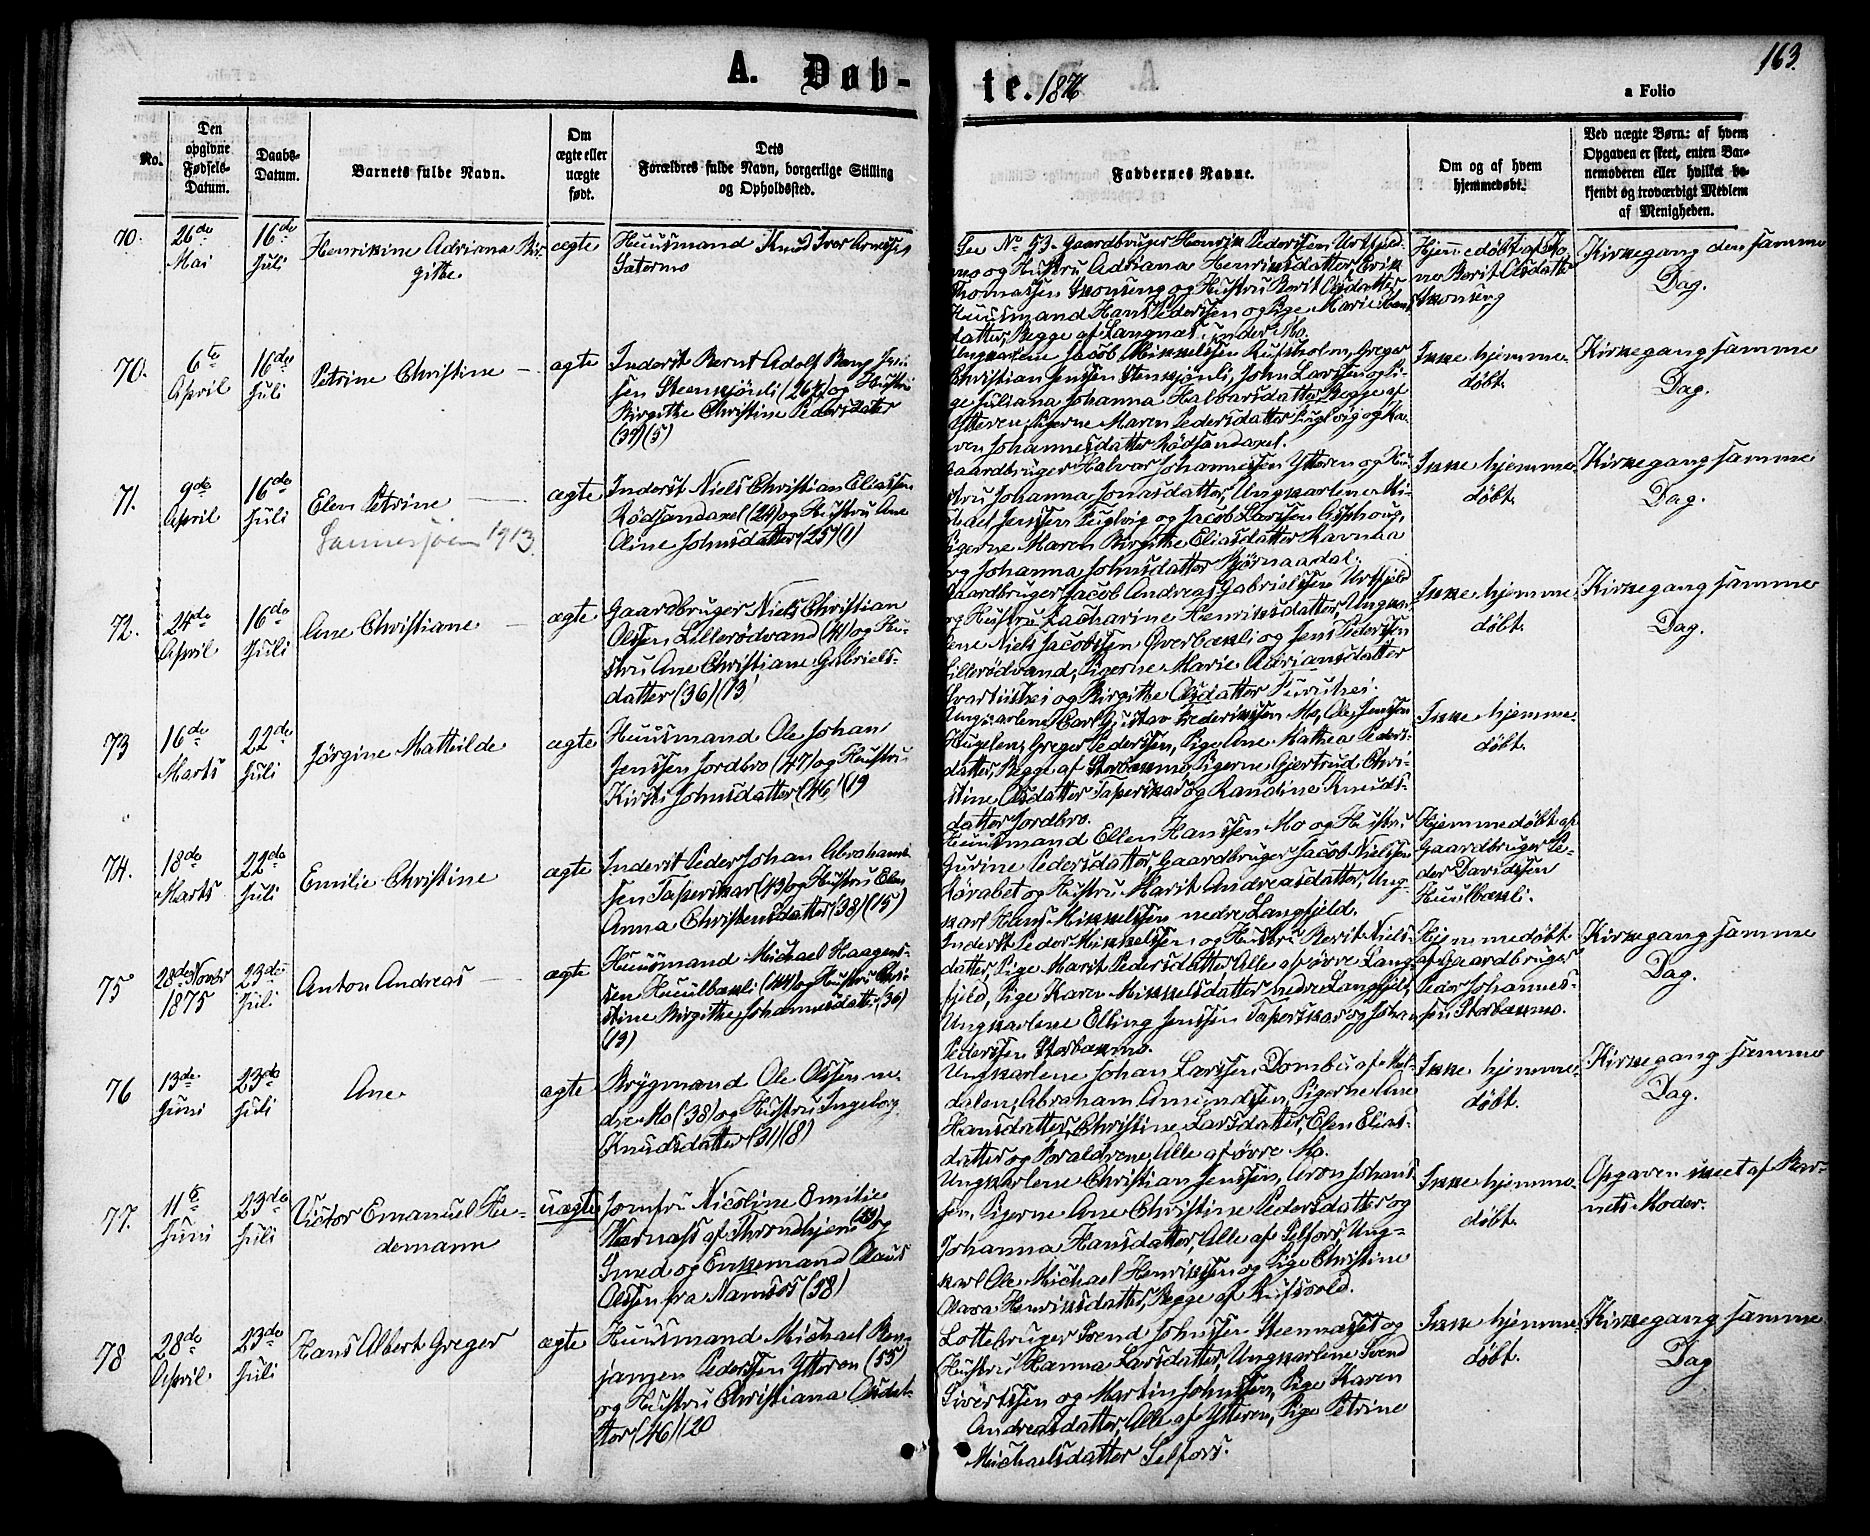 163.
A. Døb-
te. 1876
a Folio
No.
Den opgivne Fødsels-Datum.
Daabs-Datum.
Barnets fulde Navn.
Om ægte eller uægte født.
Dets Forældres fulde Navn, borgerlige Stilling og Opholdssted.
Faddernes Navne.
Om og af hvem hjemmedøbt.
Ved uægte Børn: af hvem Opgaven er skeet, enten Barnemoderen eller hvilket bekjendt og troværdigt Medlem af Menigheden.
70.
26de Mai
16de Juli
Henrikine Adriana Bir-
githe
ægte
Huusmand Knud Iver Arnesen
Sætermo
See No 53. Gaardbruger Henrik Pedersen Urtfjeld-
mo og Hustru Adriana Henriksdatter, Erik
Thomassen Skonseng og Hustru Berit Olsdatter
Huusmand Hans Pedersen og Pige Marie Hans-
datter, Begge af Langnæs under Mo.
Hjemmedøbt af Ko-
ne Berit Olsdatter
Skonseng
Kirkegang den samme
Dag.
70.
6te April
16de Juli
Petrine Christine
ægte
Inderst Bernt Adolf Bang Jen-
sen Steenkjønli (26¾) og Hustru
Birgithe Christine Pedersdatter
(34)(5)
Ungkarlene Jacob Mikkelsen Rufsholm, Greger
Christian Jenssen Stenkjønli, John Larssen og Pi-
ge Juliana Johanna Halvarsdatter Begge af
Ytteren, Pigerne Maren Pedersdatter Fuglvig og Ka-
ren Johannesdatter Rødsandaxel.
Ikke hjemme-
døbt.
Kirkegang samme
Dag.
71.
9de April
16de Juli
Elen Petrine
Sannessjøen 1913.
ægte
Inderst Niels Christian Eliassen
Rødsandaxel (24) og Hustru Ane
Oline Johnsdatter (25)(1)
Gaardbruger Halvar Johannessen Ytteren og Hu-
stru Johanna Jonasdatter, Ungkarlene Mi-
chael Jenssen Fuglvig og Jacob Larssen Asphoug,
Pigerne Maren Birgithe Eliasdatter Ravnaa
og Johanna Johnsdatter Bjørnaadal.
Ikke hjemme-
døbt.
Kirkegang samme
Dag.
72.
24de April
16de Juli
Ane Christiane
ægte
Gaardbruger Niels Christian
Olsen Lillerødvand (41) og Hu-
stru Ane Christiane Gabriels-
datter (36)(13
Gaardbruger Jacob Andreas Gabrielsen Urtfjeld
og Hustru Zacharine Henriksdatter, Ungkar-
lene Niels Jacobsen Overbækli og Jens Pedersen
Lillerødvand, Pigerne Marie Adriansdatter
Svartishei og Birgithe Olsdatter Furuhei.
Ikke hjemme-
døbt.
Kirkegang samme
Dag.
73
16de Marts
22de Juli
Jørgine Mathilde
ægte
Huusmand Ole Johan
Jenssen Jordbro (47) og Hustru
Kirsti Johnsdatter (46)(19
Ungkarlene Carl Gustav Frederiksen Mo, Ole Jenssen
Hugelen, Greger Pedersen, Pige Ane Mathea Peders-
datter, Begge af Storbækmo, Pigerne Gjertrud Chri-
stine Olsdatter Tapeskar og Randine Knuds-
datter Jordbro.
Ikke hjemme-
døbt.
74.
18de Marts
22de Juli
Emilie Christine
ægte
Inderst Peder Johan Abraham-
sen Tapeskar (43) og Hustru Elen
Anna Christensdatter (38)(15)
Huusmand Ellen Hanssen Mo og Hustru
Gurine Pedersdatter, Gaardbruger Jacob Nielssen
Rørabet og Hustru Marit Andreasdatter, Ung-
karl Hans Mikkelsen nedre Langfjeld.
Hjemmedøbt af
Gaardbruger Pe-
der Davidsen
Huulbækli.
75
28de Novbr 1875
23de Juli
Anton Andreas
ægte
Huusmand Michael Haagens-
sen Huulbækli (44) og Hustru Chri-
stine Birgithe Johannesdatter (36)
(12)
Inderst Peder Mikkelsen og Hustru Berit Niels-
datter, Pige Marit Pedersdatter Alle af øvre Lang-
fjeld, Pige Karen Mikkelsdatter nedre Langfjeld,
Ungkarlene Elling Jenssen Taperskar og Johan
Pedersen Storbækmo.
Hjemmedøbt
af Gaardbruger
Peder Johannes-
sen Storbækmo.
Kirkegang samme
Dag.
76
13de Juni
23de Juli
Ane
ægte
Brygmand Ole Olsen ne-
dre Mo (38) og Hustru Ingeborg
Knudsdatter (31)(8)
Ungkarlene Johan Larssen Dombu af Hal-
dalen, Abraham Amundsen, Pigerne Ane
Hansdatter, Christine Larsdatter, Elen Elias-
datter og Forældrene, Alle af øvre Mo.
Ikke hjemme-
døbt.
Kirkegang samme
Dag.
77.
11te Juni
23de Juli
Victor Emanuel He-
demann
uægte
Jomfru Nicoline Emilie
Wærnæss af Throndhjem og
Smed og Enkemand Olaus
Olsen fra Namsos (38)
Ungkarlene Christian Jenssen, Aron Johans-
sen, Pigerne Ane Christine Pedersdatter og
Johanna Hansdatter, Alle af Selfors, Ung-
karl Ole Michael Henriksen og Pige Christine
Olava Henriksdatter, Begge af Rufsvold.
Ikke hjemme-
døbt.
Opgaven skeet af Bar-
nets Moder.
78
28de April
23de Juli
Hans Albert Greger
ægte
Huusmand Michael Ben-
jamen Pedersen Ytteren (55)
og Hustru Christiana Olsdat-
ter (46)(20
Lottebruger Svend Johnsen Steennæset og
Hustru Hanna Larsdatter, Ungkarlene Svend
Sivertsen og Martin Johnsen, Pige Karen
Andreasdatter, Alle af Ytteren, Pige Petrine
Michaelsdatter Selfors.
Ikke hjemme-
døbt.
Kirkegang samme
Dag